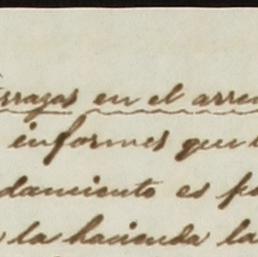 rrazas en el arren
informes que
damiento es pa
a la hacienda la